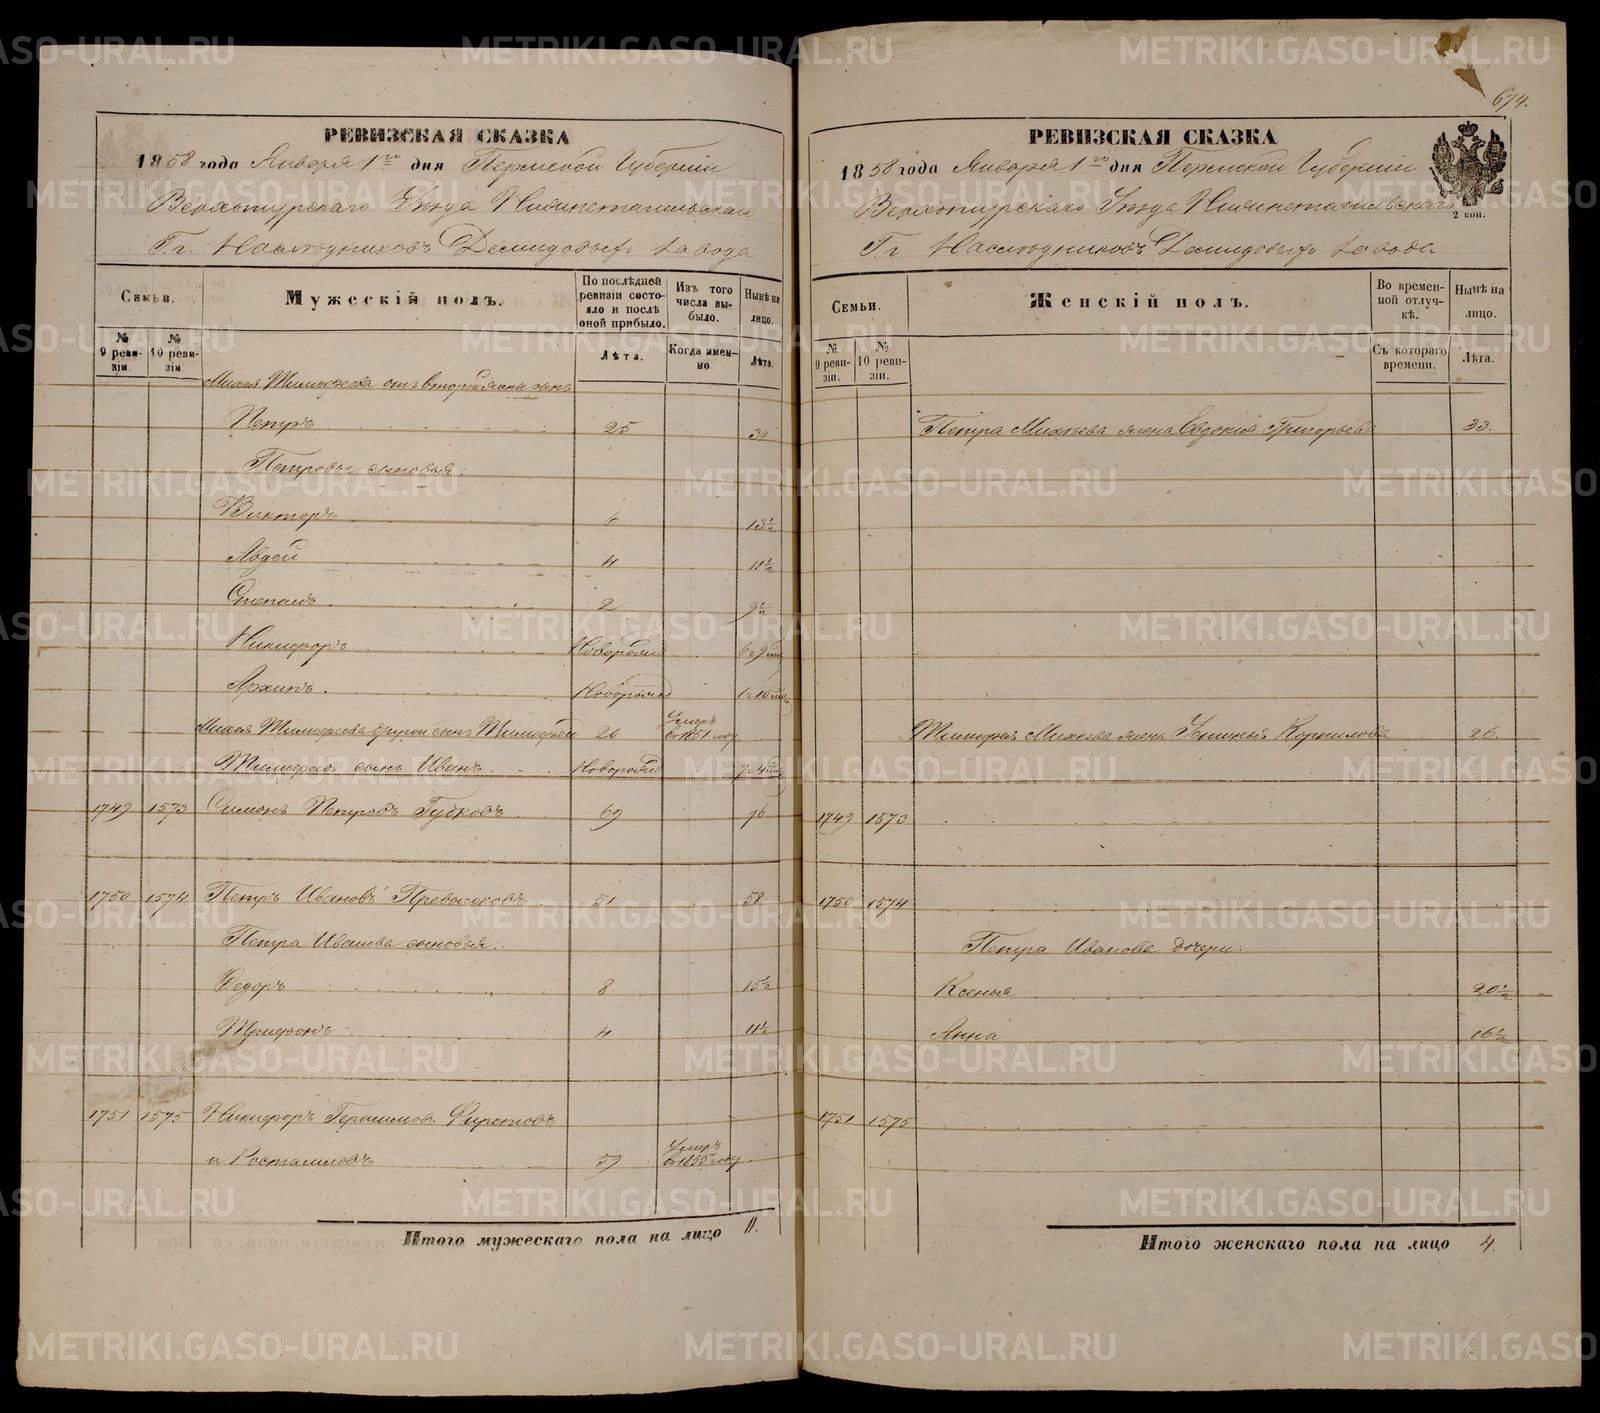 РЕВИЗСКАЯ СКАЗКА
1858 года Января 1го дня Пермской Губернiи
Верхотурскаго Уѣзда Нижнетагильскаго
Г.г. Наслѣдниковъ Демидовыхъ завода
Семьи.
Мужескiй полъ.
По послѣдней ревизiи состояло и послѣ оной прибыло.
Изъ того числа выбыло.
Нынѣ на лицо.
№ 9 ревизiи
№ 10 ревизiи
Лѣта.
Когда именно
Лѣта.
Михея Тимофеева отъ второй жены сынъ
Петръ 25 32
Петровы сыновья:
Викторъ 6 13½
Авдей 4 11½
Степанъ 2 9½
Никифоръ Новорожд 6 г 9 мѣ
Архипъ Новорожд 1 г 10 мѣ
Михея Тимофеева другой сынъ Тимофей 20 Умеръ въ 1851 году
Тимофея сынъ Иванъ Новорожд 7 г 4 мѣ
1749 1573 Симонъ Петровъ Губковъ 69 76
1750 1574 Петръ Ивановъ 51 58
Петра Иванова сыновья:
Федоръ 8 15½
Трифонъ 4 11½
1751 1575 Никифоръ Герасимовъ
и 59 Умеръ въ 1856 году
Итого мужескаго пола на лицо 11.
674.
РЕВИЗСКАЯ СКАЗКА
1858 года Января 1го дня Пермской Губернiи
Верхотурскаго Уѣзда Нижнетагильскаго
Г.г. Наслѣдниковъ Демидовыхъ завода
2 коп.
Семьи.
Женскiй полъ.
Во временной отлучкѣ.
Нынѣ на лицо.
№ 9 ревизiи.
№ 10 ревизiи.
Съ котораго времени.
Лѣта.
Петра Михеева жена Евдокiя Григорьева 33.
Тимофея Михеева жена Корнилова 26.
1749 1573
1750 1574
Петра Иванова дочери:
Ксенья 20½
Анна 16½
1751 1575
Итого женскаго пола на лицо 4.
METRIKI.GASO-URAL.RU